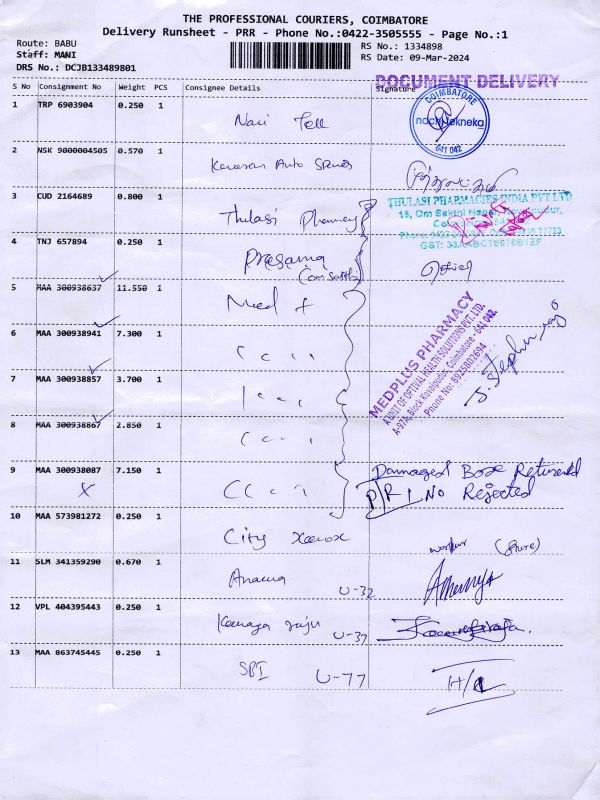 THE PROFESSIONAL COURIERS, COIMBATORE
Delivery Runsheet - PRR - Phone No.:0422-3505555 - Page No.:1
Route: BABU
Staff: MANI
DRS No.: DCJB133489801
RS No.: 1334898
RS Date: 09-Mar-2024
DOCUMENT DELIVERY
S No Consignment No Weight PCS Consignee Details Signature
1 TRP 6903904 0.250 1
COIMBATORE
641 042
2 NSK 9000004505 0.570 1 Auto
3 CUD 2164689 0.800 1 Thulasi Pharmacy
THULASI PHARMACIES INDIA PVT LTD
15, Om Sakthi Nagar,
4 TNJ 657894 0.250 1 Prasanna
5 MAA 300938637 11.550 1 Med +
6 MAA 300938941 7.300 1
7 MAA 300938857 3.700 1
8 MAA 300938867 2.850 1
MEDPLUS PHARMACY
A UNIT OF OPTIVAL HEALTH SOLUTIONS PVT. LTD.
A-97A, Block Kovaipudur, Coimbatore - 641 042.
Phone No: 8925802694
9 MAA 300938087 7.150 1 Damaged Box Returned
X PRR No Rejected
10 MAA 573981272 0.250 1 City Xerox
11 SLM 341359290 0.670 1 U-32
12 VPL 404395443 0.250 1 Kanaga raju U-37
13 MAA 863745445 0.250 1 SBI U-77